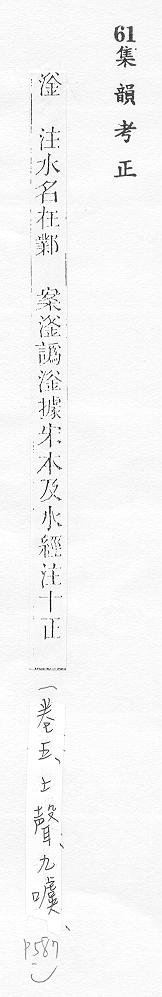 61集韻考正
滏 注水名在鄴 案滏譌滏據宋本及水經注十正
(卷五、上聲、九噳、
P587)